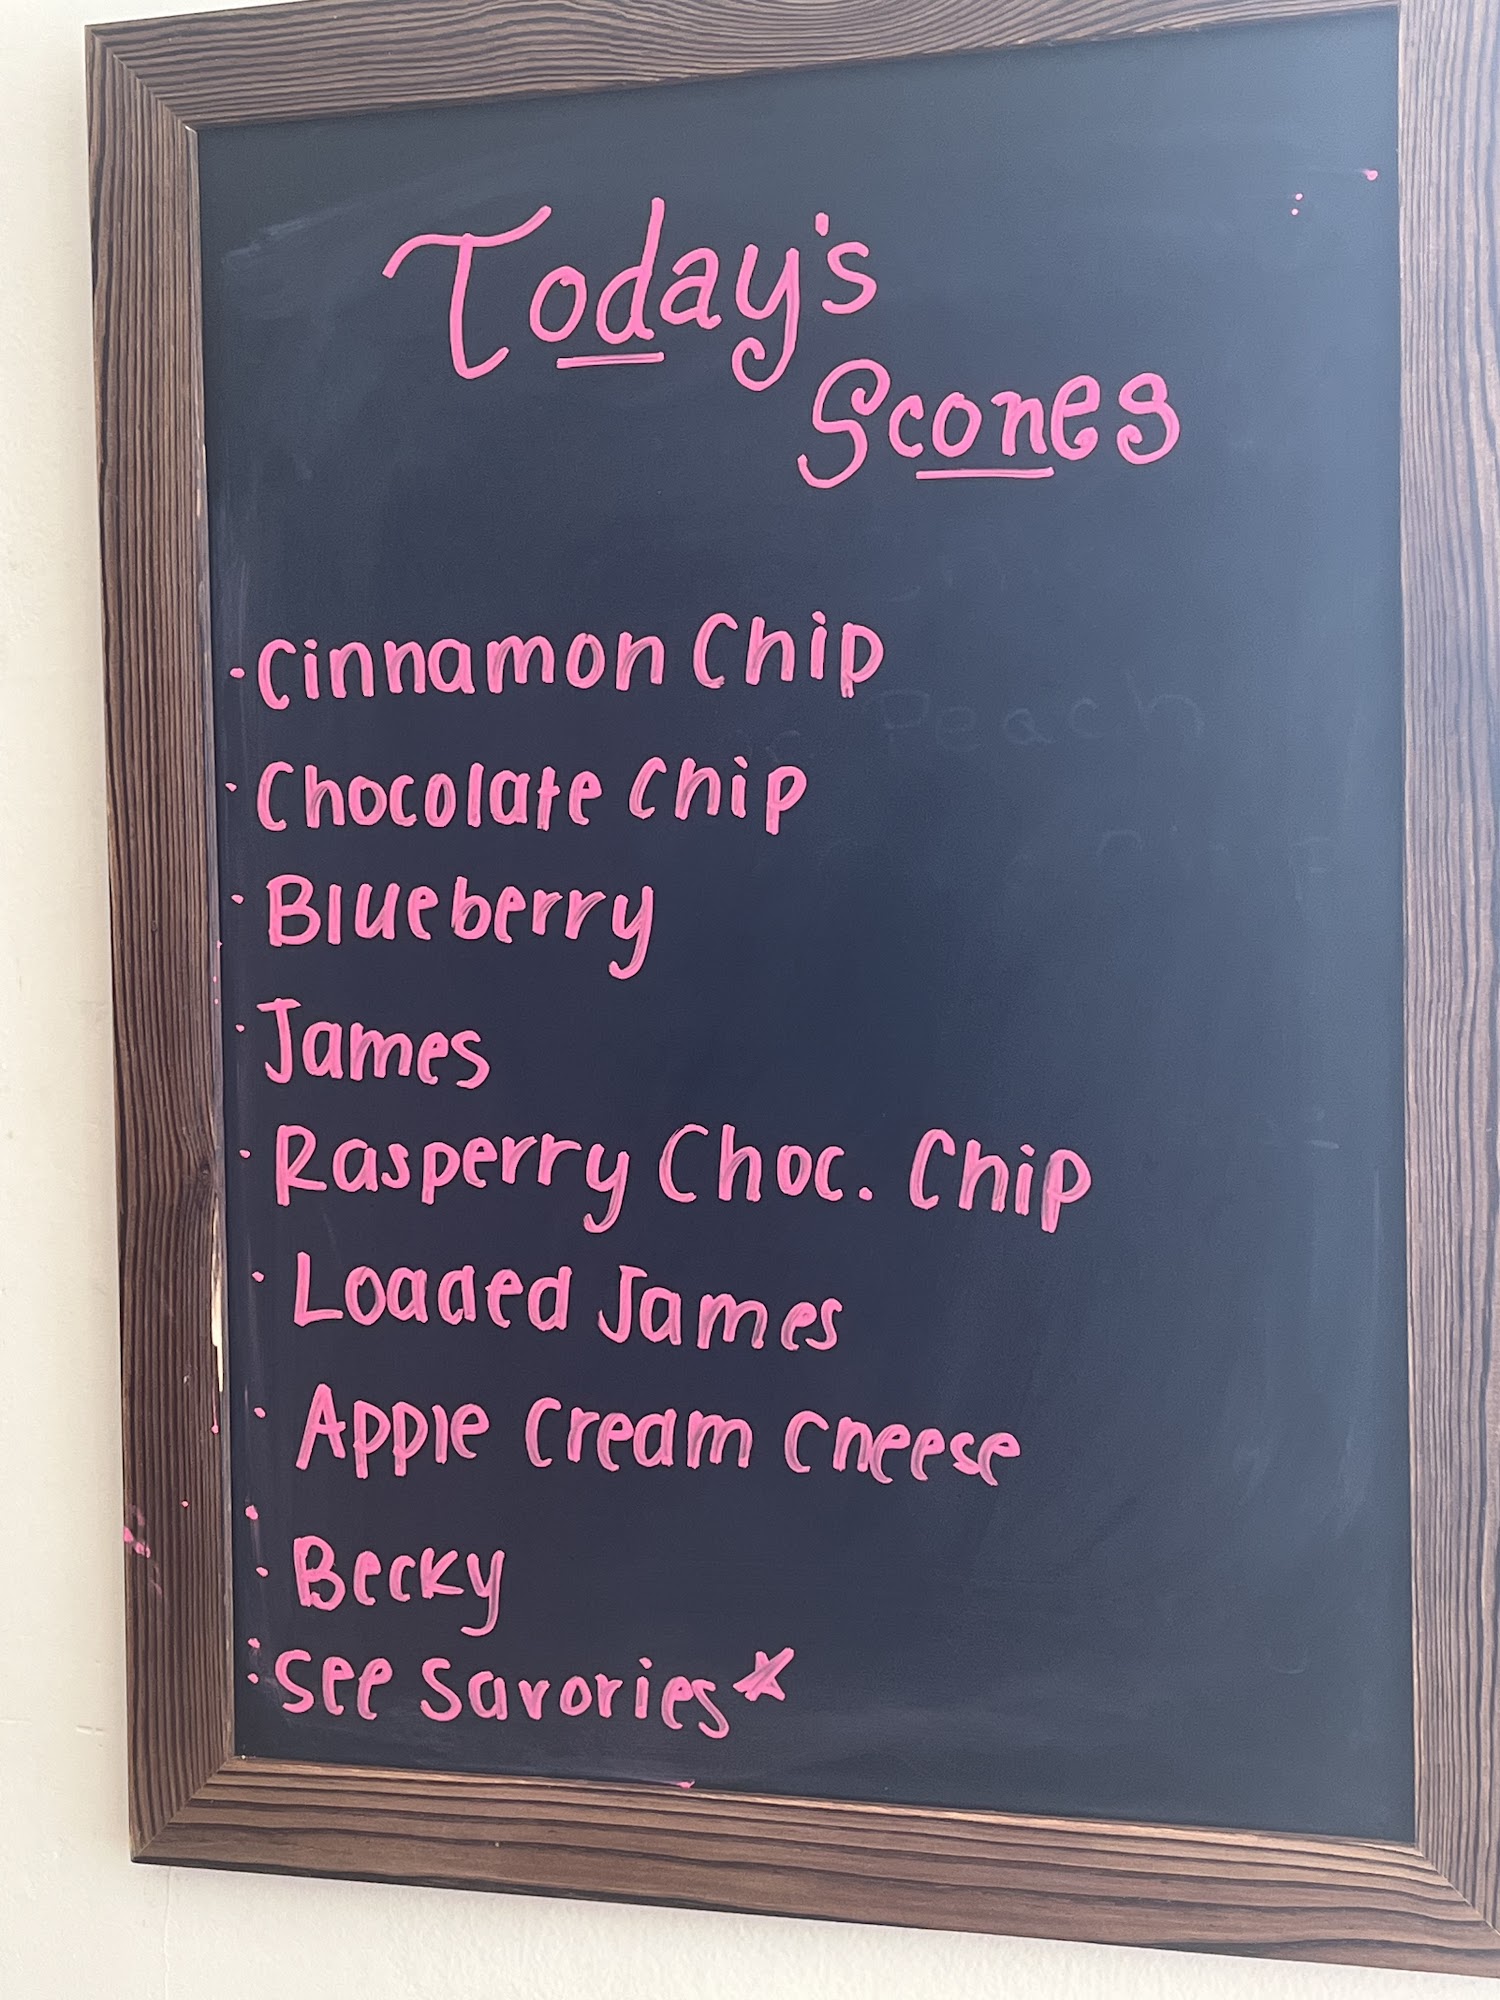 Today's
Scones
·Cinnamon Chip
Peach
·Chocolate Chip
·Blueberry
·James
·Rasperry Choc. Chip
·Loaded James
·Apple Cream Cheese
·Becky
·See Savories*